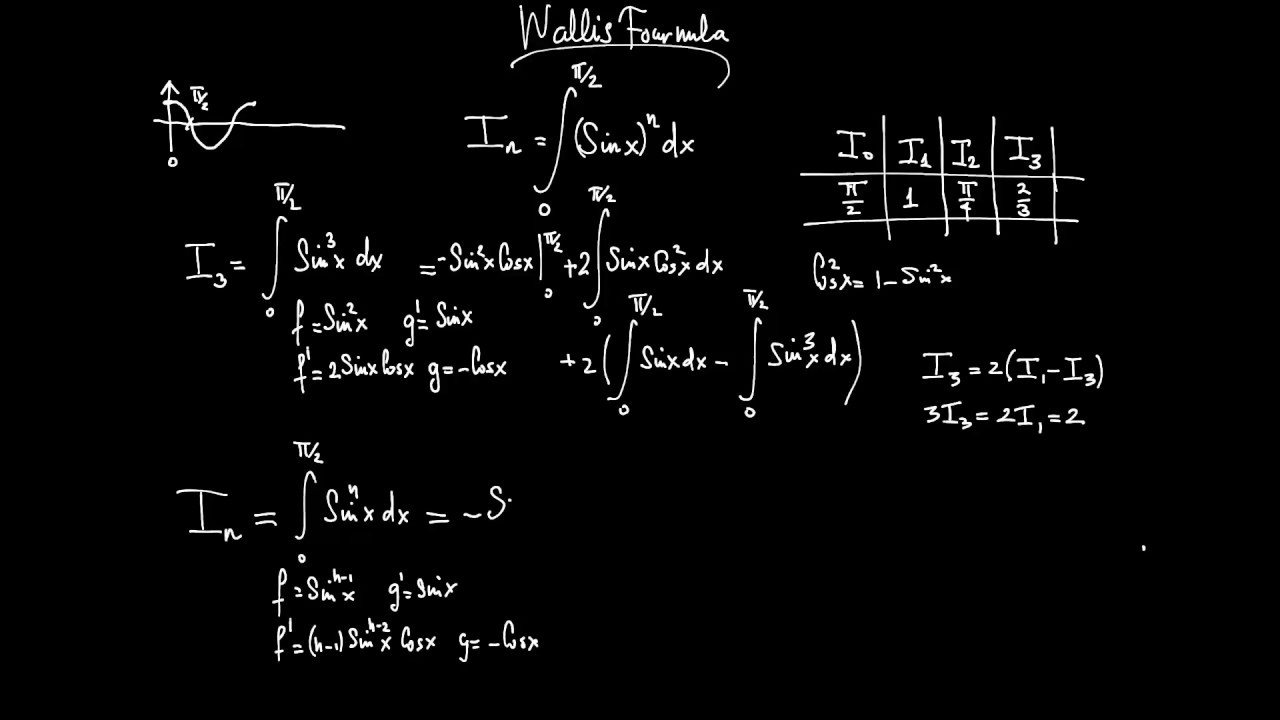 Wallis Fourmula
π/2
0
I_n = ∫_0^{π/2} (Sinx)^n dx
I_0 I_1 I_2 I_3
π/2 1 π/4 2/3
I_3 = ∫_0^{π/2} Sin^3x dx = -Sin^2x Cosx |_0^{π/2} + 2 ∫_0^{π/2} Sinx Cos^2x dx
Cos^2x = 1 - Sin^2x
f = Sin^2x g' = Sinx
f' = 2Sinx Cosx g = -Cosx
+ 2 ( ∫_0^{π/2} Sinx dx - ∫_0^{π/2} Sin^3x dx )
I_3 = 2(I_1 - I_3)
3I_3 = 2I_1 = 2
I_n = ∫_0^{π/2} Sin^n x dx = - S
f = Sin^{n-1}x g' = Sinx
f' = (n-1) Sin^{n-2}x Cosx g = -Cosx